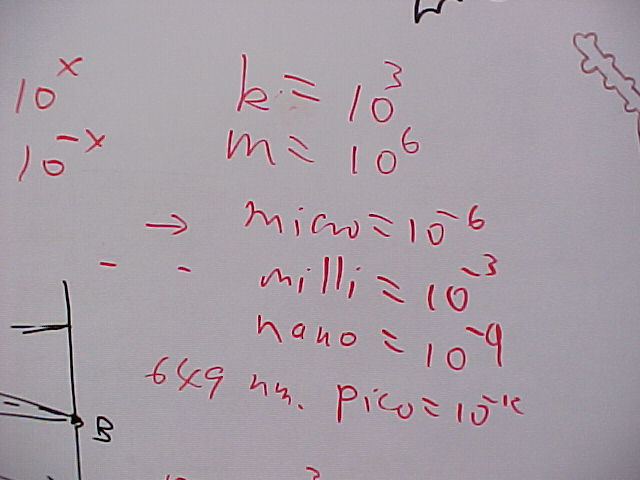 10^x k = 10^3
10^-x m = 10^6
→ micro = 10^-6
- - milli = 10^-3
nano = 10^-9
649 nm. pico = 10^-12
B